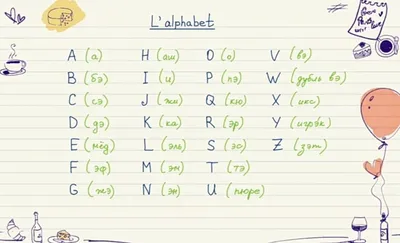 L'alphabet
A (а) H (аш) O (о) V (вэ)
B (бэ) I (и) P (пэ) W (дубль вэ)
C (сэ) J (жи) Q (кю) X (икс)
D (дэ) K (ка) R (эр) Y (игрэк)
E (мёд) L (эль) S (эс) Z (зэт)
F (эф) M (эм) T (тэ)
G (жэ) N (эн) U (пюре)